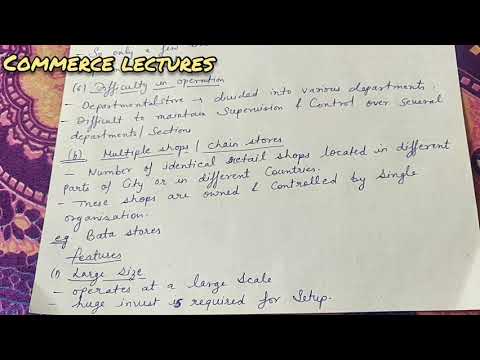 So only a few
COMMERCE LECTURES
(6) Difficulty in operation
- Departmental store → divided into various departments.
- Difficult to maintain Supervision & Control over Several
departments/ Sections
(b) Multiple shops / chain stores
- Number of identical retail shops located in different
parts of City or in different Countries.
- These shops are owned & controlled by single
organisation.
eg Bata stores
features
(1) Large Size
- operates at a large Scale
- huge invest is required for Setup.